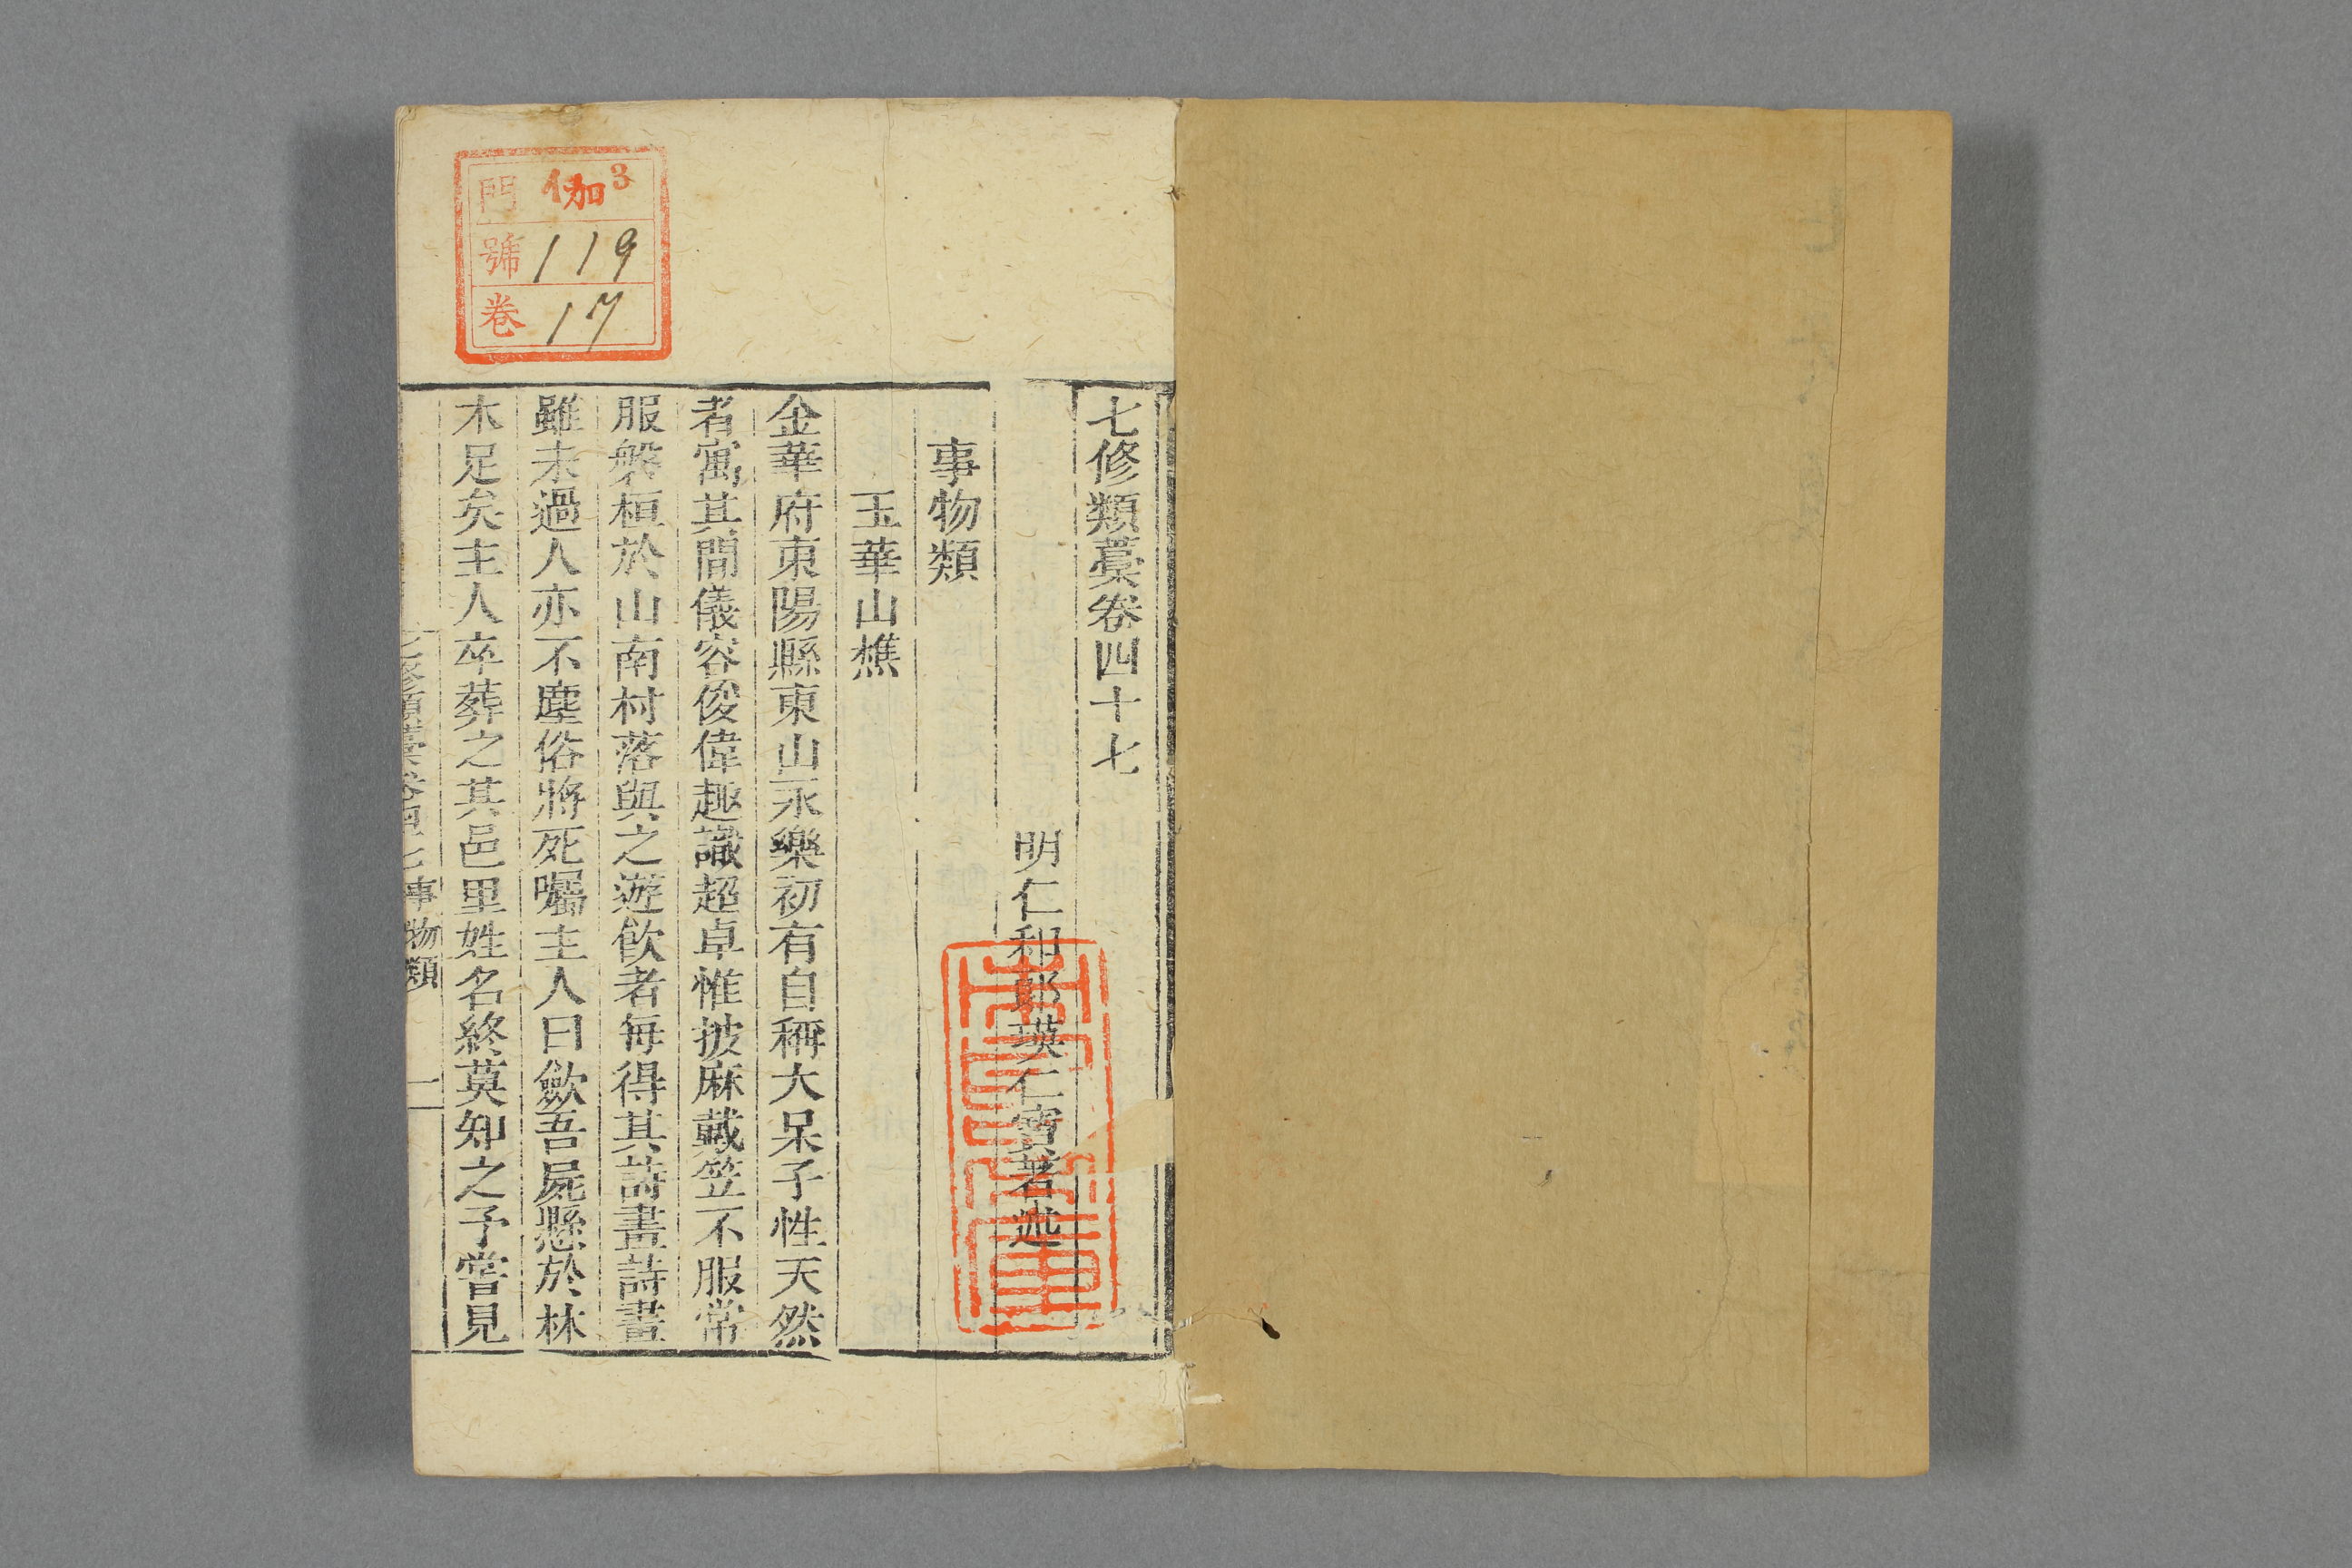 七修類藁卷四十七
明仁和郎瑛仁寶著述
事物類
玉華山樵
金華府東陽縣東山永樂初有自稱大呆子性天然
者寓其間儀容俊偉趣識超卓惟披麻戴笠不服常
服槃桓於山南村落與之遊飲者每得其詩畫詩畫
雖未過人亦不塵俗將死囑主人曰斂吾屍懸於林
木足矣主人卒葬之其邑里姓名終莫知之予嘗見
七修類藁卷四十七 事物類 一
門 伽3
號 119
卷 17